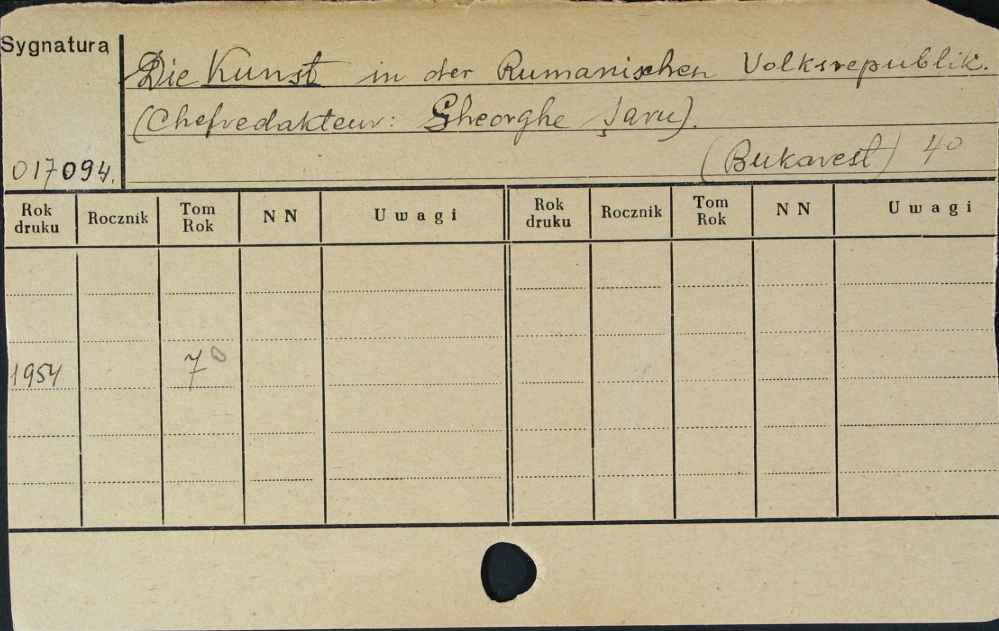 Sygnatura
Die Kunst in der Rumanischen Volksrepublik.
(Chefredakteur: Gheorghe Șaru).
(Bukarest) 4°
017094.
Rok druku Rocznik Tom Rok NN Uwagi Rok druku Rocznik Tom Rok NN Uwagi
1954 7°